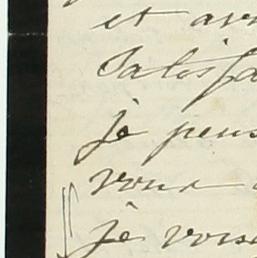 et av
Satisfa
je pens
vous
je vous